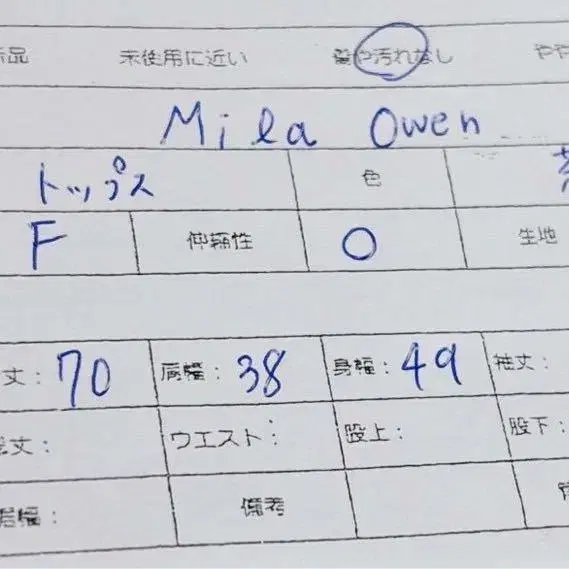 新品 未使用に近い 傷や汚れなし やや
Mila Owen
トップス 色 茶
F 伸縮性 O 生地
丈: 70 肩幅: 38 身幅: 49 袖丈:
総丈: ウエスト: 股上: 股下:
裾幅: 備考